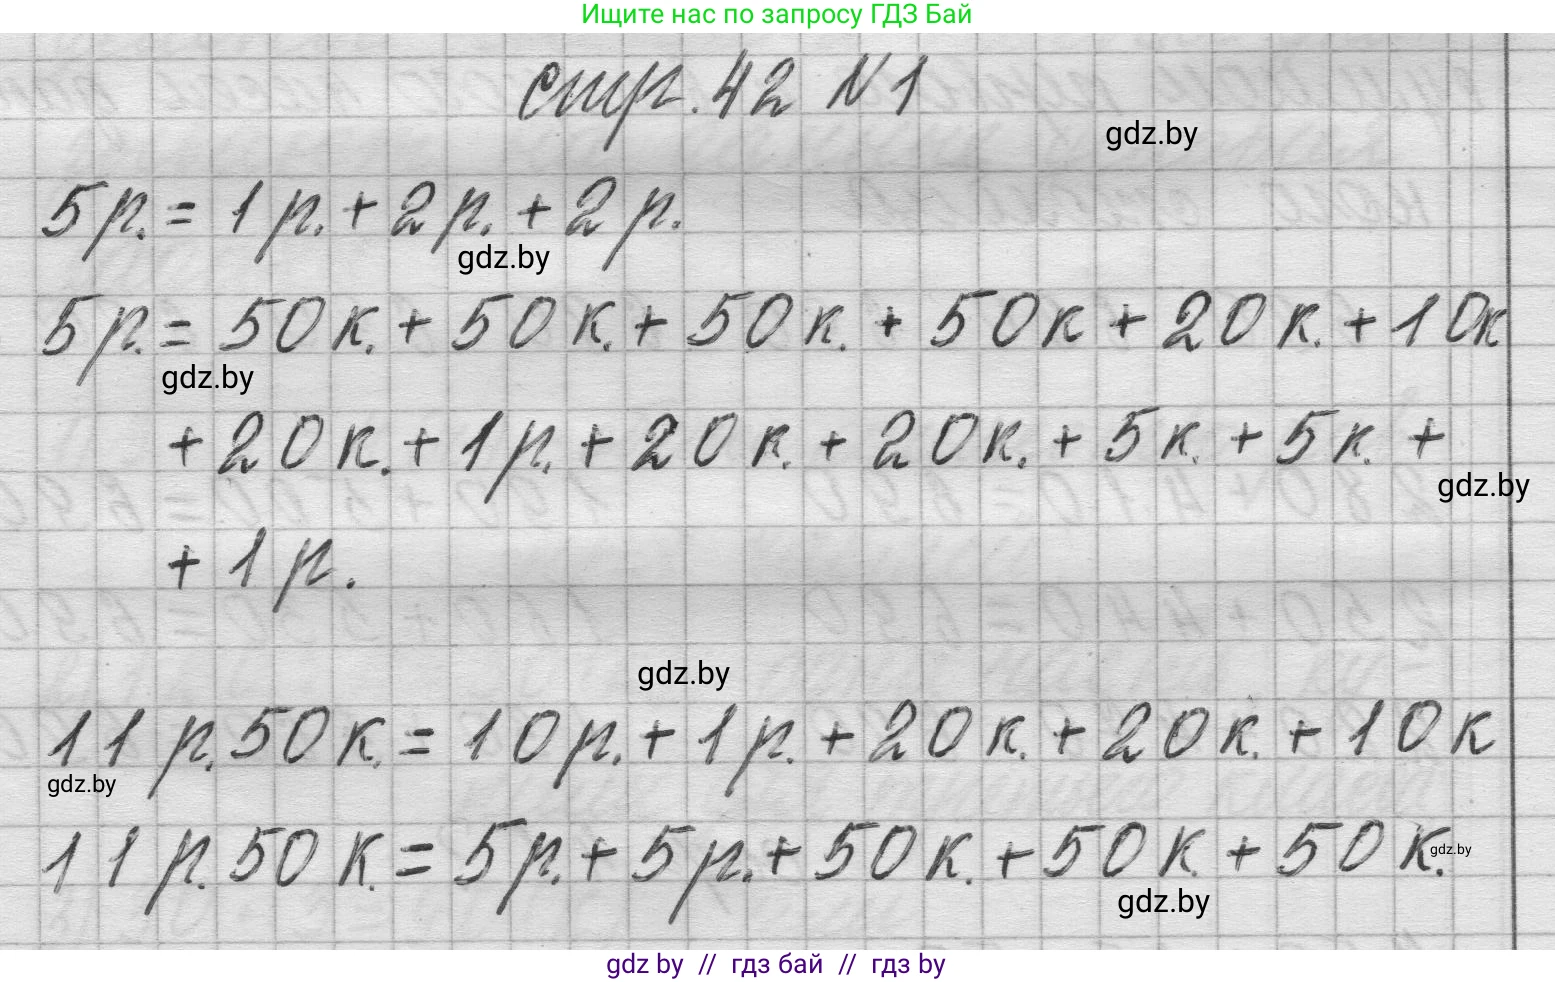 Ищите нас по запросу ГДЗ Бай
стр. 42 N 1
gdz.by
5 р. = 1 р. + 2 р. + 2 р.
gdz.by
5 р. = 50 к. + 50 к. + 50 к. + 50 к + 20 к. + 10к
gdz.by
+ 20 к. + 1 р. + 20 к. + 20 к. + 5 к. + 5 к. +
gdz.by
+ 1 р.
gdz.by
11 р. 50 к. = 10 р. + 1 р. + 20 к. + 20 к. + 10 к
gdz.by
11 р. 50 к. = 5 р. + 5 р. + 50 к. + 50 к. + 50 к.
gdz.by
gdz.by
gdz by // гдз бай // гдз by